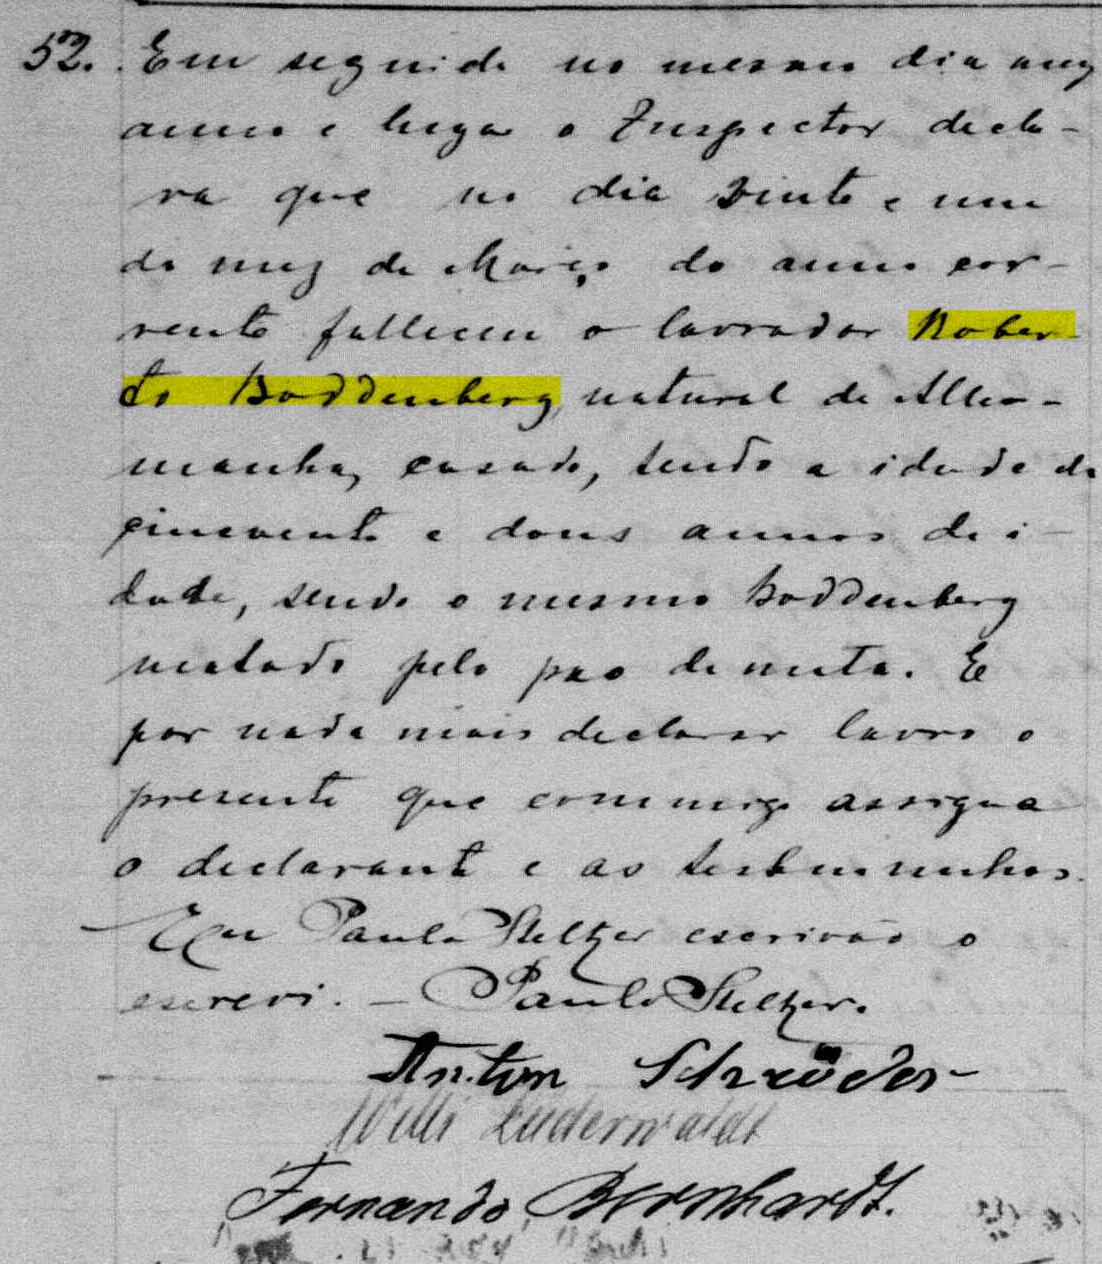 52. Em seguida no mesmo dia mez
anno e lugar o Inspector decla-
ra que no dia vinte e um
do mez de Março do anno cor-
rente falleceu o lavrador Rober-
to Boddenberg, natural de Alle-
manha, casado, tendo a idade de
cincoenta e dous annos de i-
dade, sendo o mesmo Boddenberg
matado pelo pao de mata. E
por nada mais declarar lavro o
presente que commigo assigna
o declarante e as testemunhas.
Eu Paulo Steltzer escrivão o
escrevi. — Paulo Steltzer.
Anton Schröder
Willi Lüderwaldt
Fernando Bernhardt.